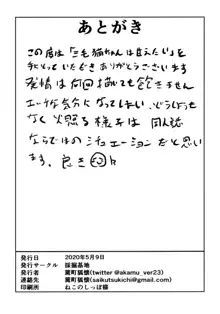 あとがき
この度は「三毛猫ちゃんは甘えたい」を
手にとっていただきありがとうございます
発情は何回描いても飽きません
エッチな気分になってしまい、どうしようも
なく火照る様子は 同人誌
ならではのシチュエーションだと思い
ます。良き
発行日 2020年5月9日
発行サークル 採掘基地
発行者 (twitter @akamu_ver23)
連絡先 (saikutsukichi@gmail.com)
印刷所 ねこのしっぽ様